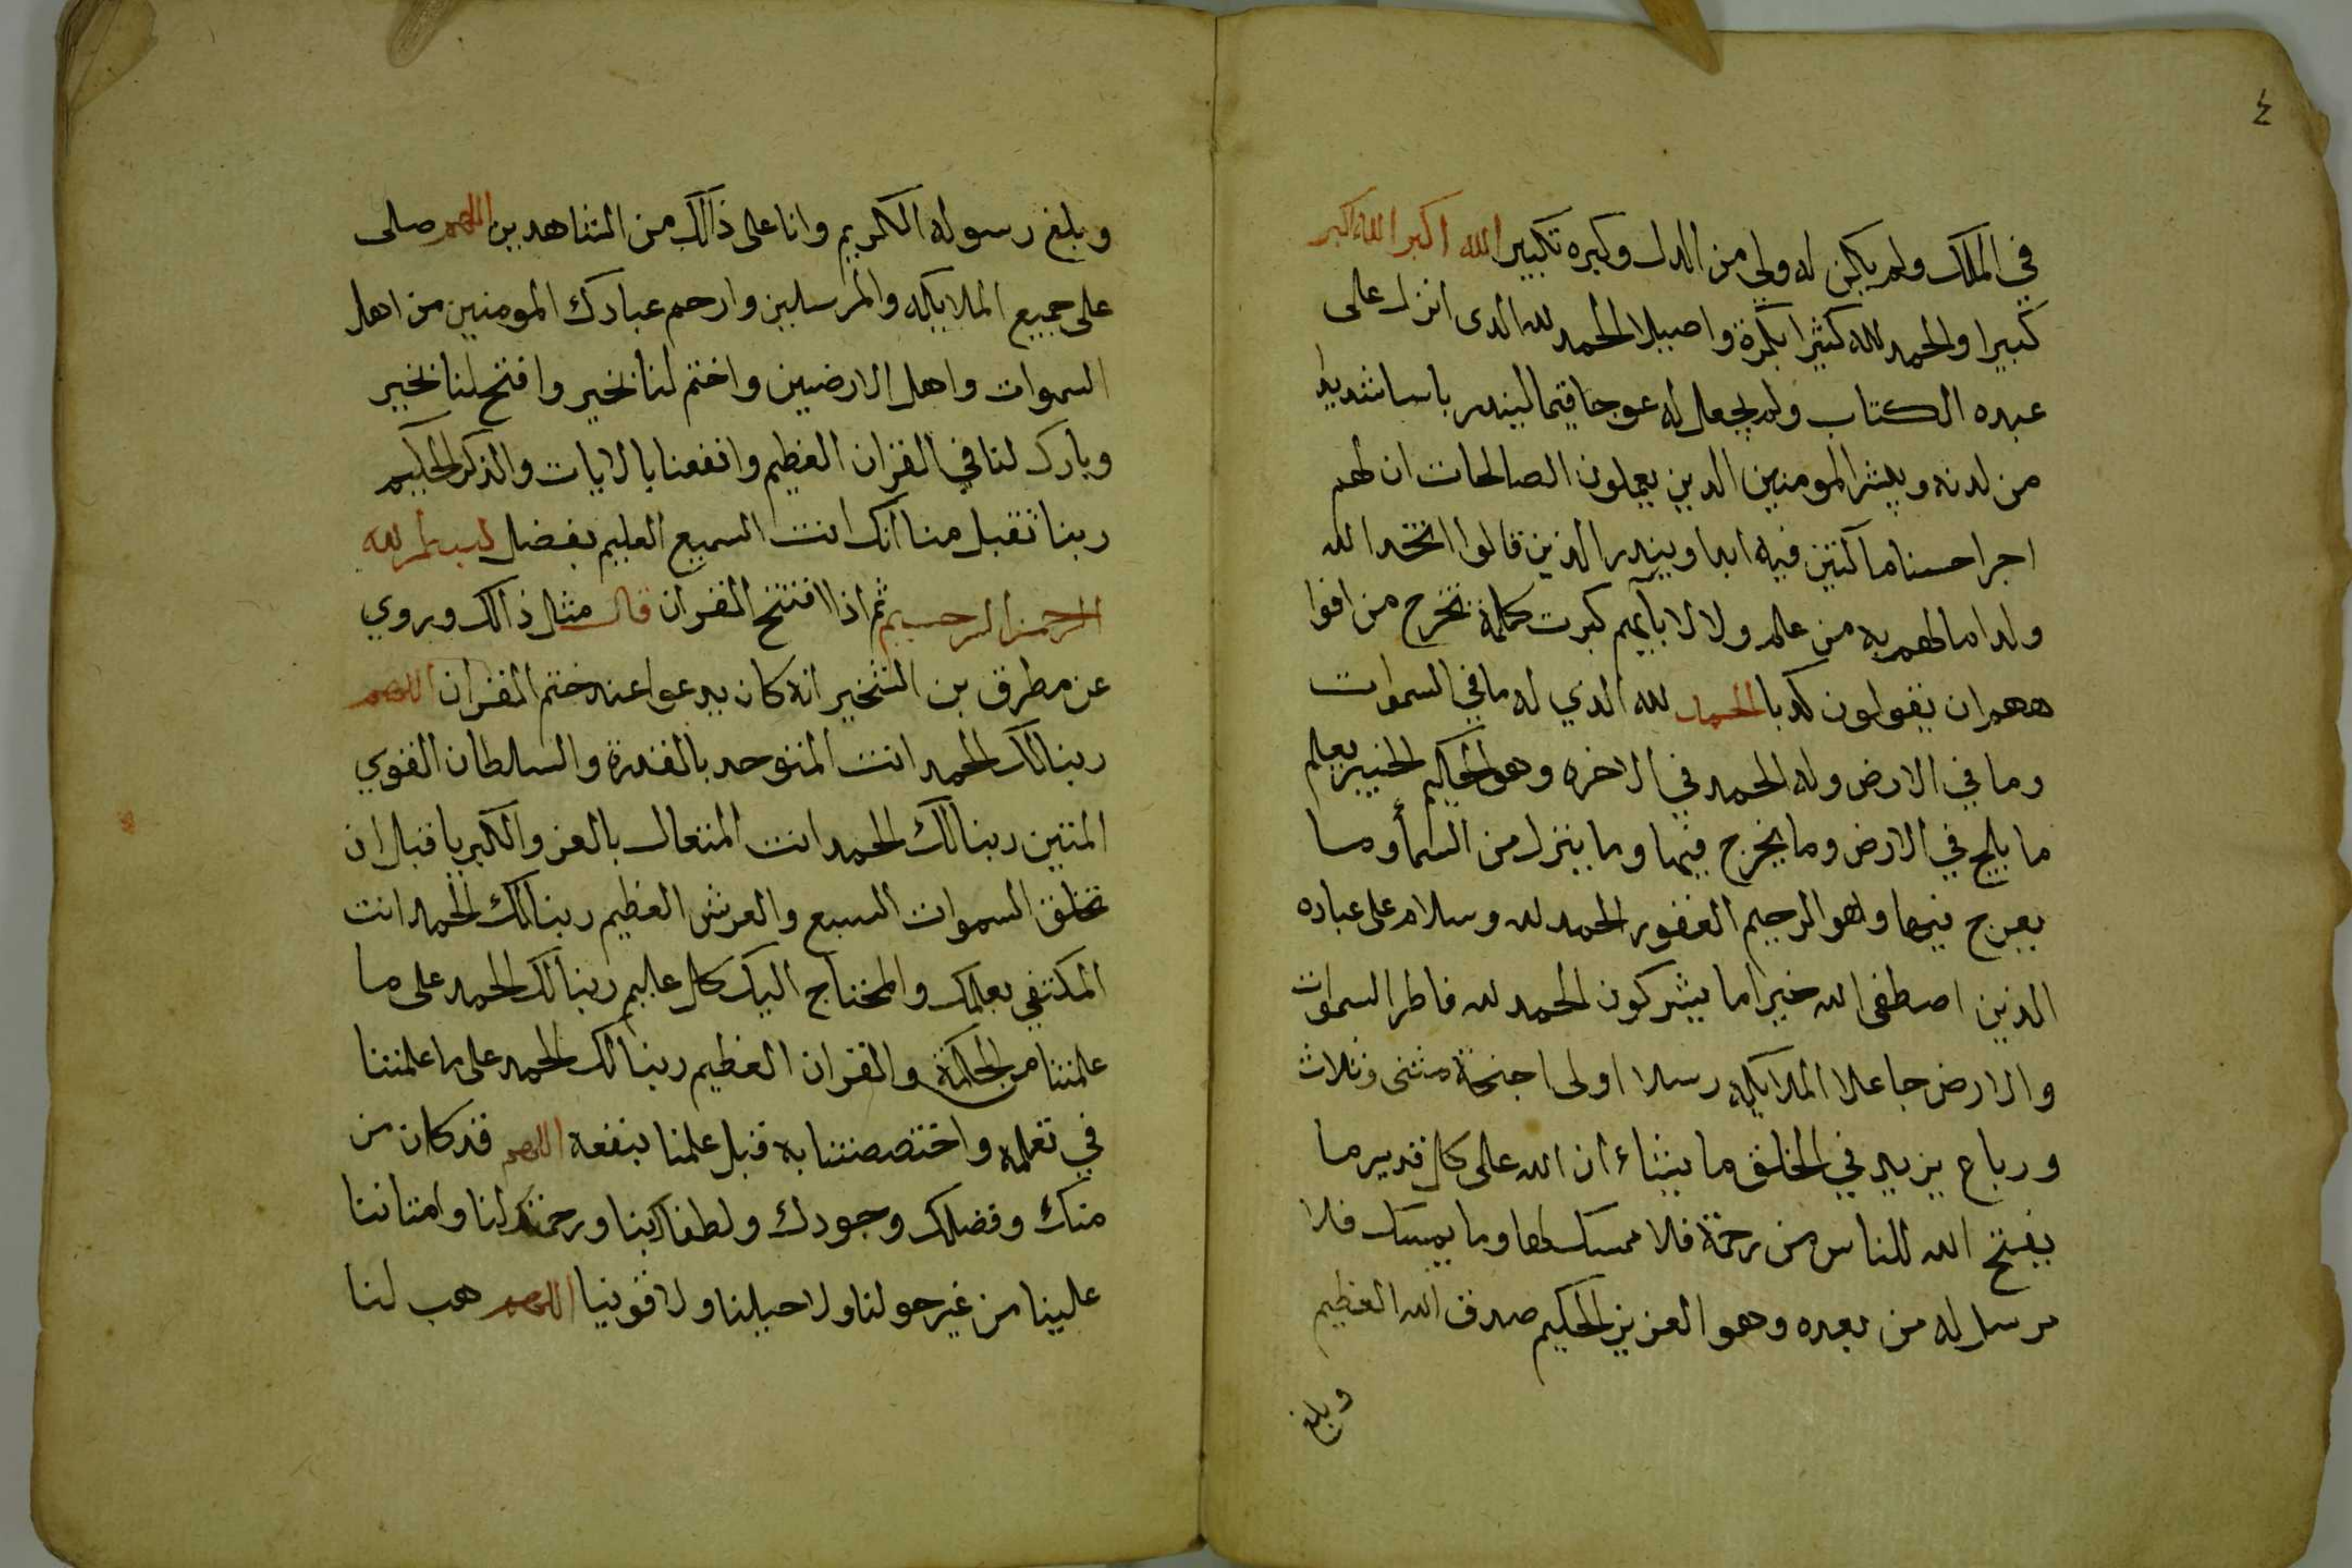 ٤
في الملك ولم يكن له ولي من الدل وكبره تكبيرا الله اكبر الله اكبر
كبيرا والحمد لله كثيرا بكرة واصيلا الحمد لله الدى انزل على
عبده الكتاب ولم يجعل له عوجا قيما لينذر باسا شديدا
من لدنه ويبشر المومنين الدين يعملون الصالحات ان لهم
اجرا حسنا ماكثين فيه ابدا وينذر الذين قالوا اتخذ الله
ولدا مالهم به من علم ولا لابآيهم كبرت كلمة تخرج من افوا
ههم ان يقولون كدبا الحمد لله الدي له ما في السموات
وما في الارض وله الحمد في الاخره وهو الحكيم الخبير يعلم
ما يلج في الارض وما يخرج فيها وما ينزل من السمأ وما
يعرج فيها وهو الرحيم الغفور الحمد لله وسلام على عباده
الذين اصطفى الله خير اما يشركون الحمد لله فاطر السموات
والارض جاعلا الملايكه رسلا اولى اجنحة مثنى وثلاث
ورباع يزيد في الخلق ما يشاء ان الله على كل قدير ما
يفتح الله للناس من رحمة فلا ممسك لها وما يمسك فلا
مرسل له من بعده وهو العزيز الحكيم صدق الله العظيم
وبلغ
وبلغ رسوله الكريم وانا على ذالك من الشاهدين اللهم صلى
على جميع الملايكه والمرسلين وارحم عبادك المومنين من اهل
السموات واهل الارضيين واختم لنا بخير وافتح لنا بخير
وبارك لنا في القران العظيم وانفعنا بالايات والذكر الحكيم
ربنا تقبل منا انك انت السميع العليم بفضل بسم الله
الرحمن الرحيم ثم اذا افتتح القران قال مثل ذالك وروي
عن مطرف بن الشخير انه كان يدعوا عند ختم القران اللهم
ربنا لك الحمد انت المتوحد بالقدرة والسلطان القوي
المتين ربنا لك الحمد انت المتعال بالعز والكبريا قبل ان
تخلق السموات السبع والعرش العظيم ربنا لك الحمد انت
المكتفي بعلمك والمحتاج اليك كل عليم ربنا لك الحمد على ما
علمتنا من الحكمة والقران العظيم ربنا لك الحمد على ما علمتنا
في تعلمه واختصصتنا به قبل علمنا بنفعه اللهم قد كان من
منك وفضلك وجودك ولطفك بنا ورحمتك لنا وامتاننا
علينا من غير حولنا ولا حيلنا ولا قوتنا اللهم هب لنا